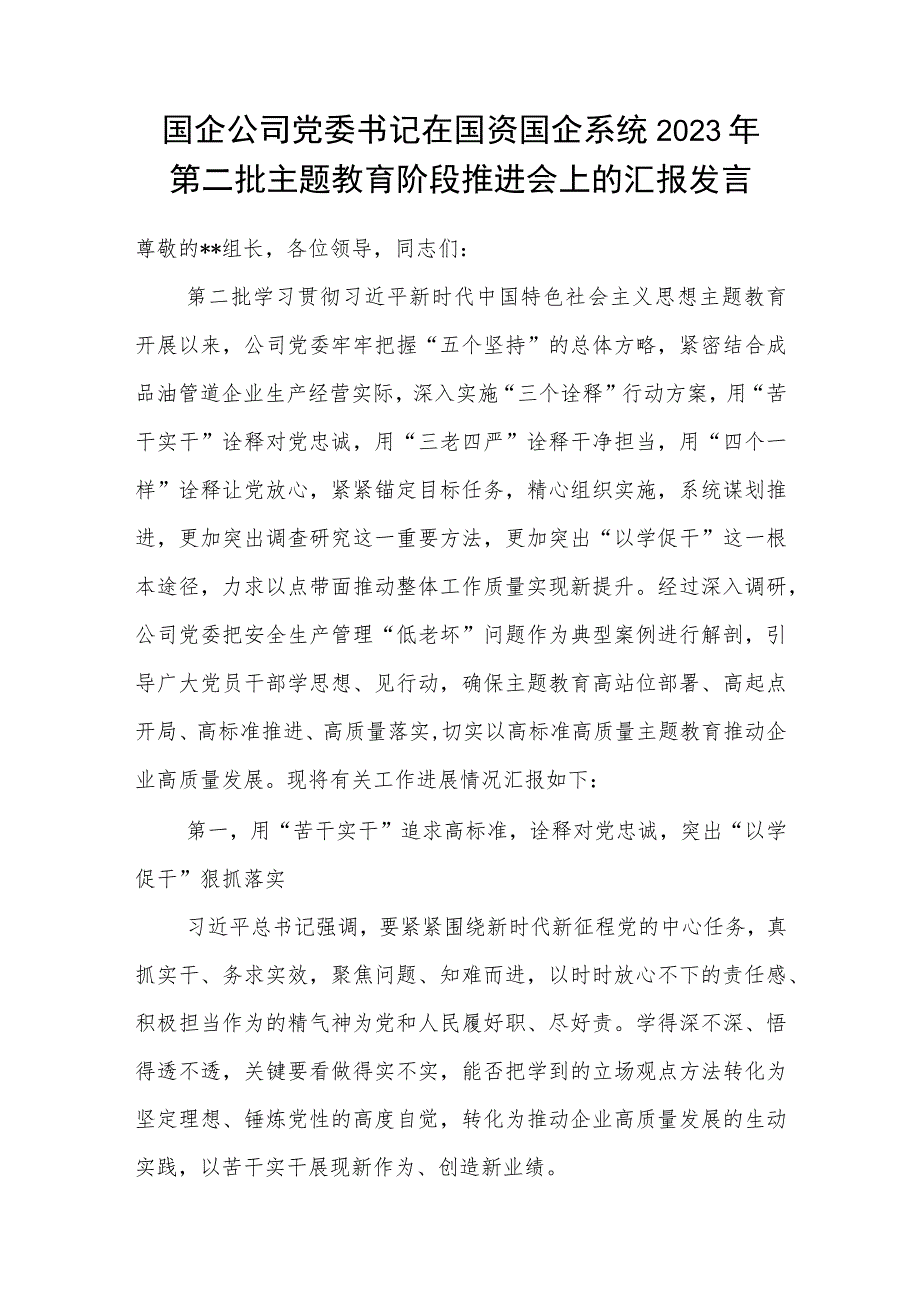 国企公司党委书记在国资国企系统2023年
第二批主题教育阶段推进会上的汇报发言
尊敬的**组长，各位领导，同志们：
第二批学习贯彻习近平新时代中国特色社会主义思想主题教育
开展以来，公司党委牢牢把握“五个坚持”的总体方略，紧密结合成
品油管道企业生产经营实际，深入实施“三个诠释”行动方案，用“苦
干实干”诠释对党忠诚，用“三老四严”诠释干净担当，用“四个一
样”诠释让党放心，紧紧锚定目标任务，精心组织实施，系统谋划推
进，更加突出调查研究这一重要方法，更加突出“以学促干”这一根
本途径，力求以点带面推动整体工作质量实现新提升。经过深入调研，
公司党委把安全生产管理“低老坏”问题作为典型案例进行解剖，引
导广大党员干部学思想、见行动，确保主题教育高站位部署、高起点
开局、高标准推进、高质量落实,切实以高标准高质量主题教育推动企
业高质量发展。现将有关工作进展情况汇报如下：
第一，用“苦干实干”追求高标准，诠释对党忠诚，突出“以学
促干”狠抓落实
习近平总书记强调，要紧紧围绕新时代新征程党的中心任务，真
抓实干、务求实效，聚焦问题、知难而进，以时时放心不下的责任感、
积极担当作为的精气神为党和人民履好职、尽好责。学得深不深、悟
得透不透，关键要看做得实不实，能否把学到的立场观点方法转化为
坚定理想、锤炼党性的高度自觉，转化为推动企业高质量发展的生动
实践，以苦干实干展现新作为、创造新业绩。